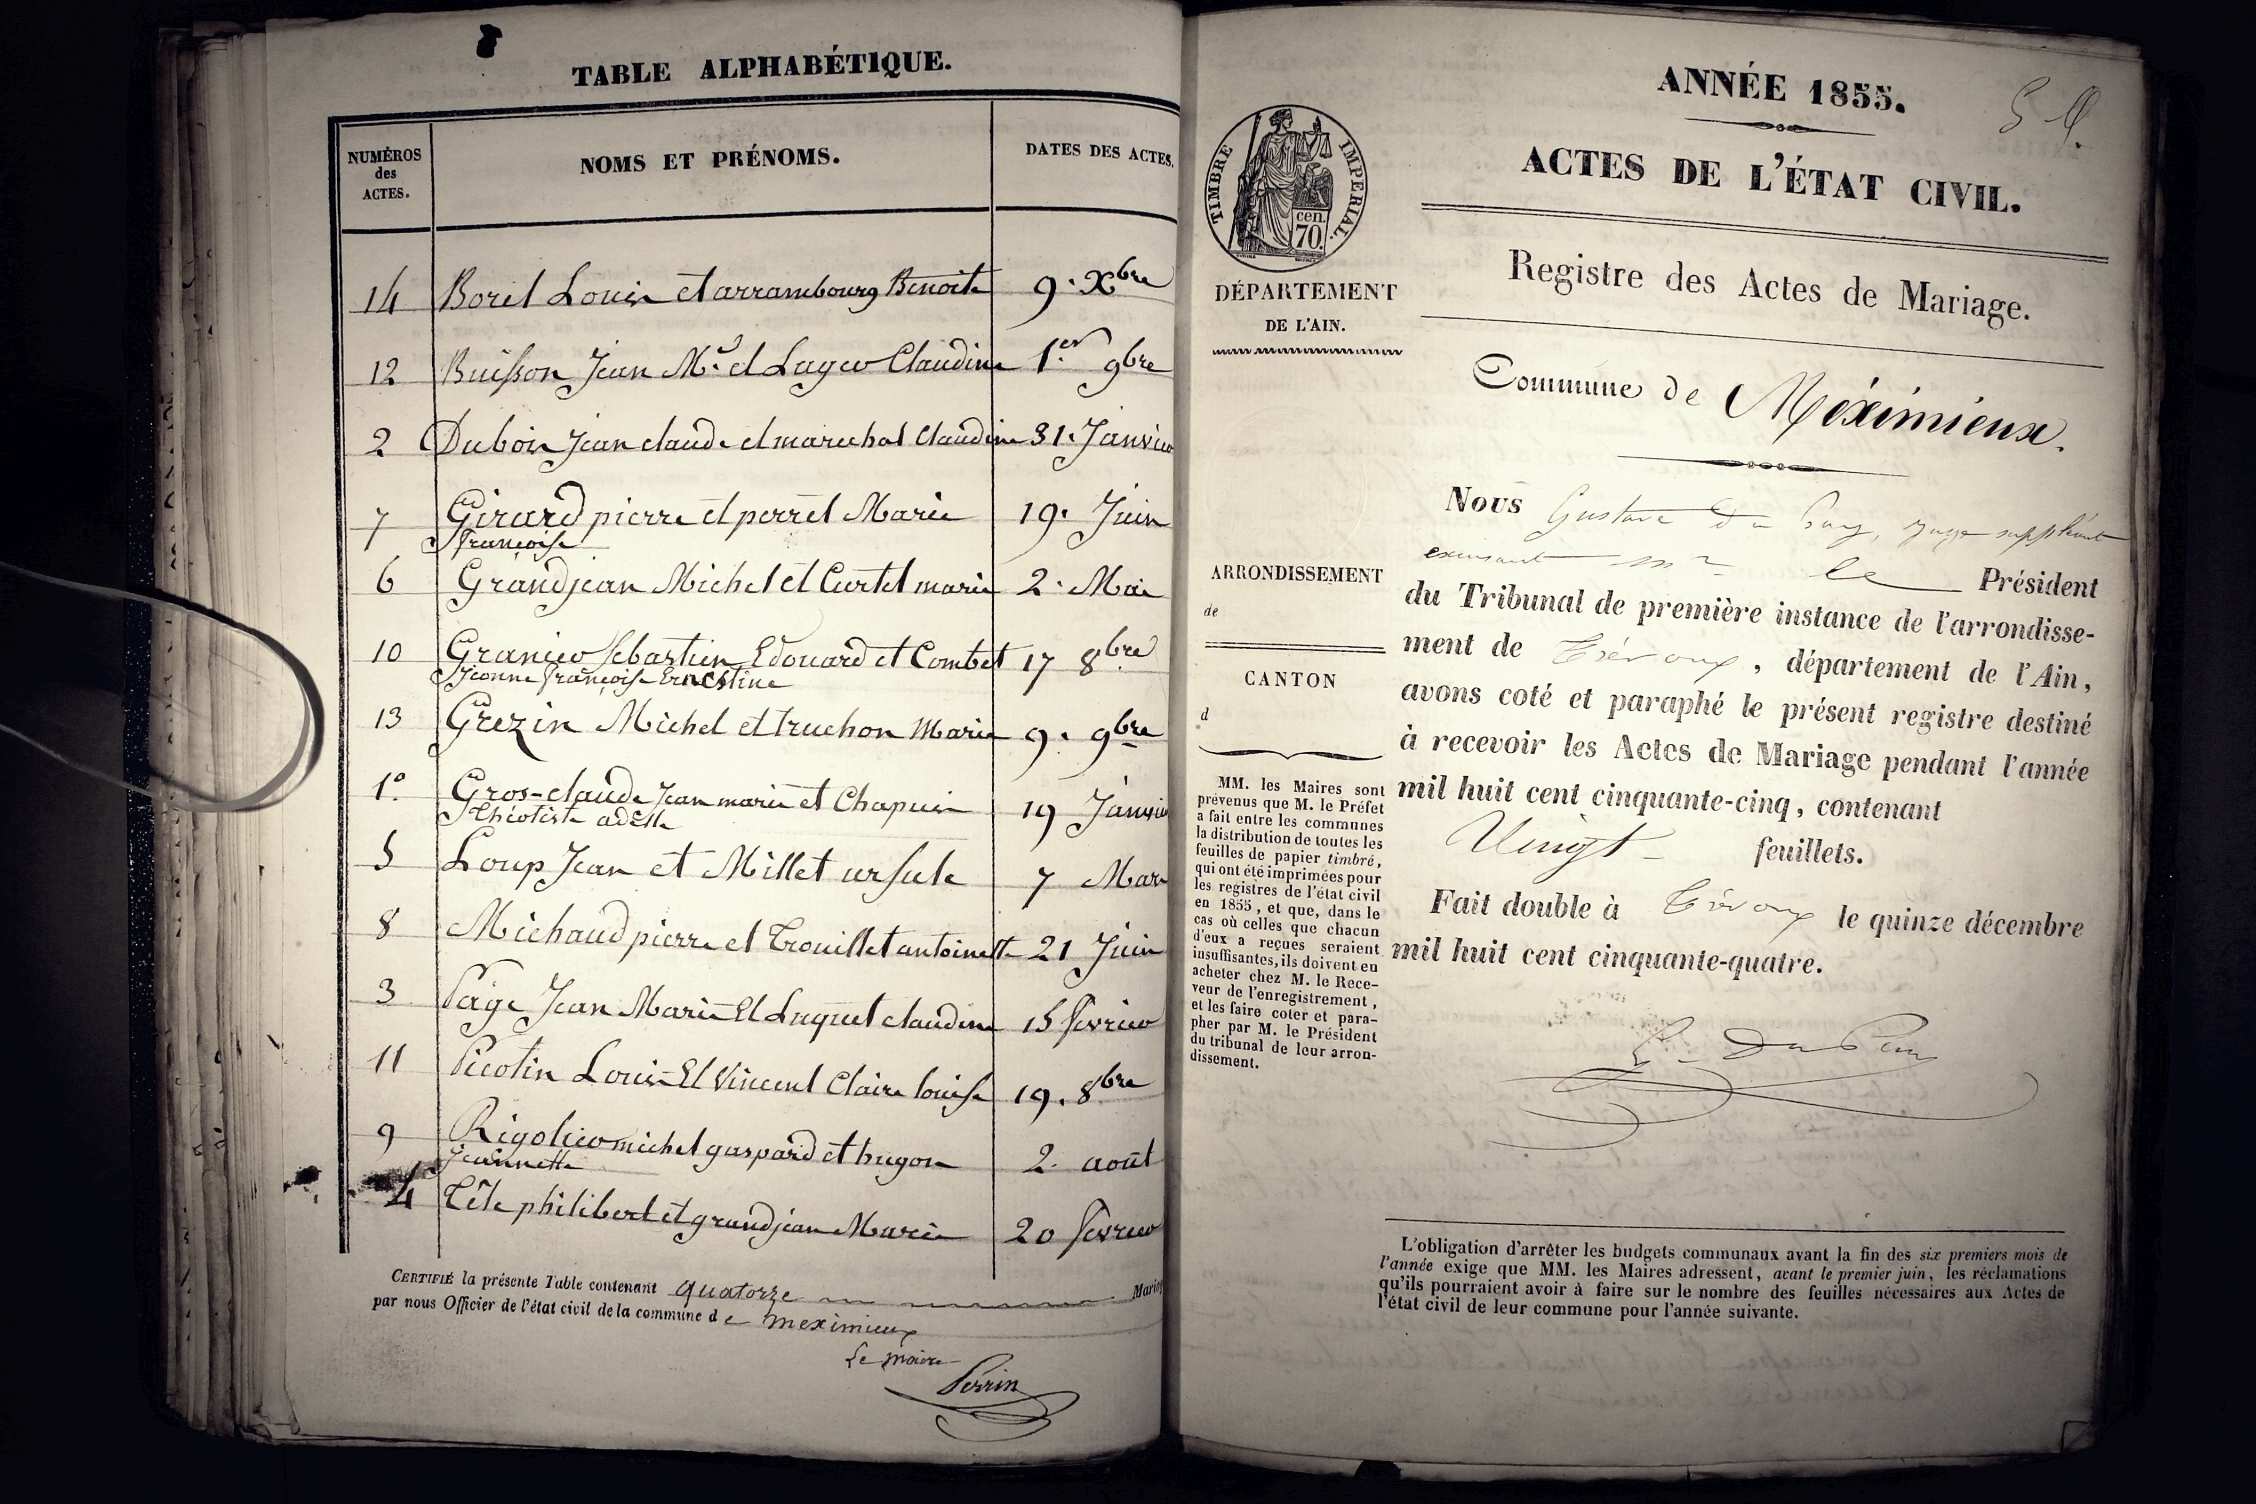 TABLE ALPHABÉTIQUE.
NUMÉROS des ACTES.
NOMS ET PRÉNOMS.
DATES DES ACTES.
14 Borel Louis et arrambourg Benoite 9. Xbre
12 Buisson Jean Mie et Lager Claudine 1.er 9bre
2 Dubois Jean claude et marechal Claudine 31. Janvier
7 Girard pierre et perret Marie 19. Juin
françoise
6 Grandjean Michel et Curtet marie 2. Mai
10 Granier Sebastien Edouard et Combet 17 8bre
Jeanne françoise Ernestine
13 Grezin Michel et truchon Marie 9. 9bre
1° Gros-claude Jean marie et Chapuis 19 Janvier
Théotiste adelle
5 Loup Jean et Millet ursule 7 Mars
8 Michaud pierre et Trouillet antoinette 21 Juin
3 Page Jean Marie Et Luquet claudine 15 fevrier
11 Picotin Louis Et Vincent Claire louise 19. 8bre
9 Rigolier michel gaspard et hugon 2. août
Jeannette
4 Tête philibert et grandjean Marie 20 fevrier
CERTIFIÉ la présente Table contenant quatorze
par nous Officier de l'état civil de la commune de meximieux
Le maire
Perrin
ANNÉE 1855.
ACTES DE L'ÉTAT CIVIL.
Registre des Actes de Mariage.
Commune de Méximieux.
TIMBRE IMPERIAL.
cen.
70.
DÉPARTEMENT
DE L'AIN.
ARRONDISSEMENT
de
CANTON
d
MM. les Maires sont
prévenus que M. le Préfet
a fait entre les communes
la distribution de toutes les
feuilles de papier timbré,
qui ont été imprimées pour
les registres de l'état civil
en 1855, et que, dans le
cas où celles que chacun
d'eux a reçues seraient
insuffisantes, ils doivent en
acheter chez M. le Rece-
veur de l'enregistrement,
et les faire coter et para-
pher par M. le Président
du tribunal de leur arron-
dissement.
Nous Gustave juge suppléant
mr le Président
du Tribunal de première instance de l'arrondisse-
ment de Trévoux, département de l'Ain,
avons coté et paraphé le présent registre destiné
à recevoir les Actes de Mariage pendant l'année
mil huit cent cinquante-cinq, contenant
Vingt feuillets.
Fait double à Trévoux le quinze décembre
mil huit cent cinquante-quatre.
L'obligation d'arrêter les budgets communaux avant la fin des six premiers mois de
l'année exige que MM. les Maires adressent, avant le premier juin, les réclamations
qu'ils pourraient avoir à faire sur le nombre des feuilles nécessaires aux Actes de
l'état civil de leur commune pour l'année suivante.